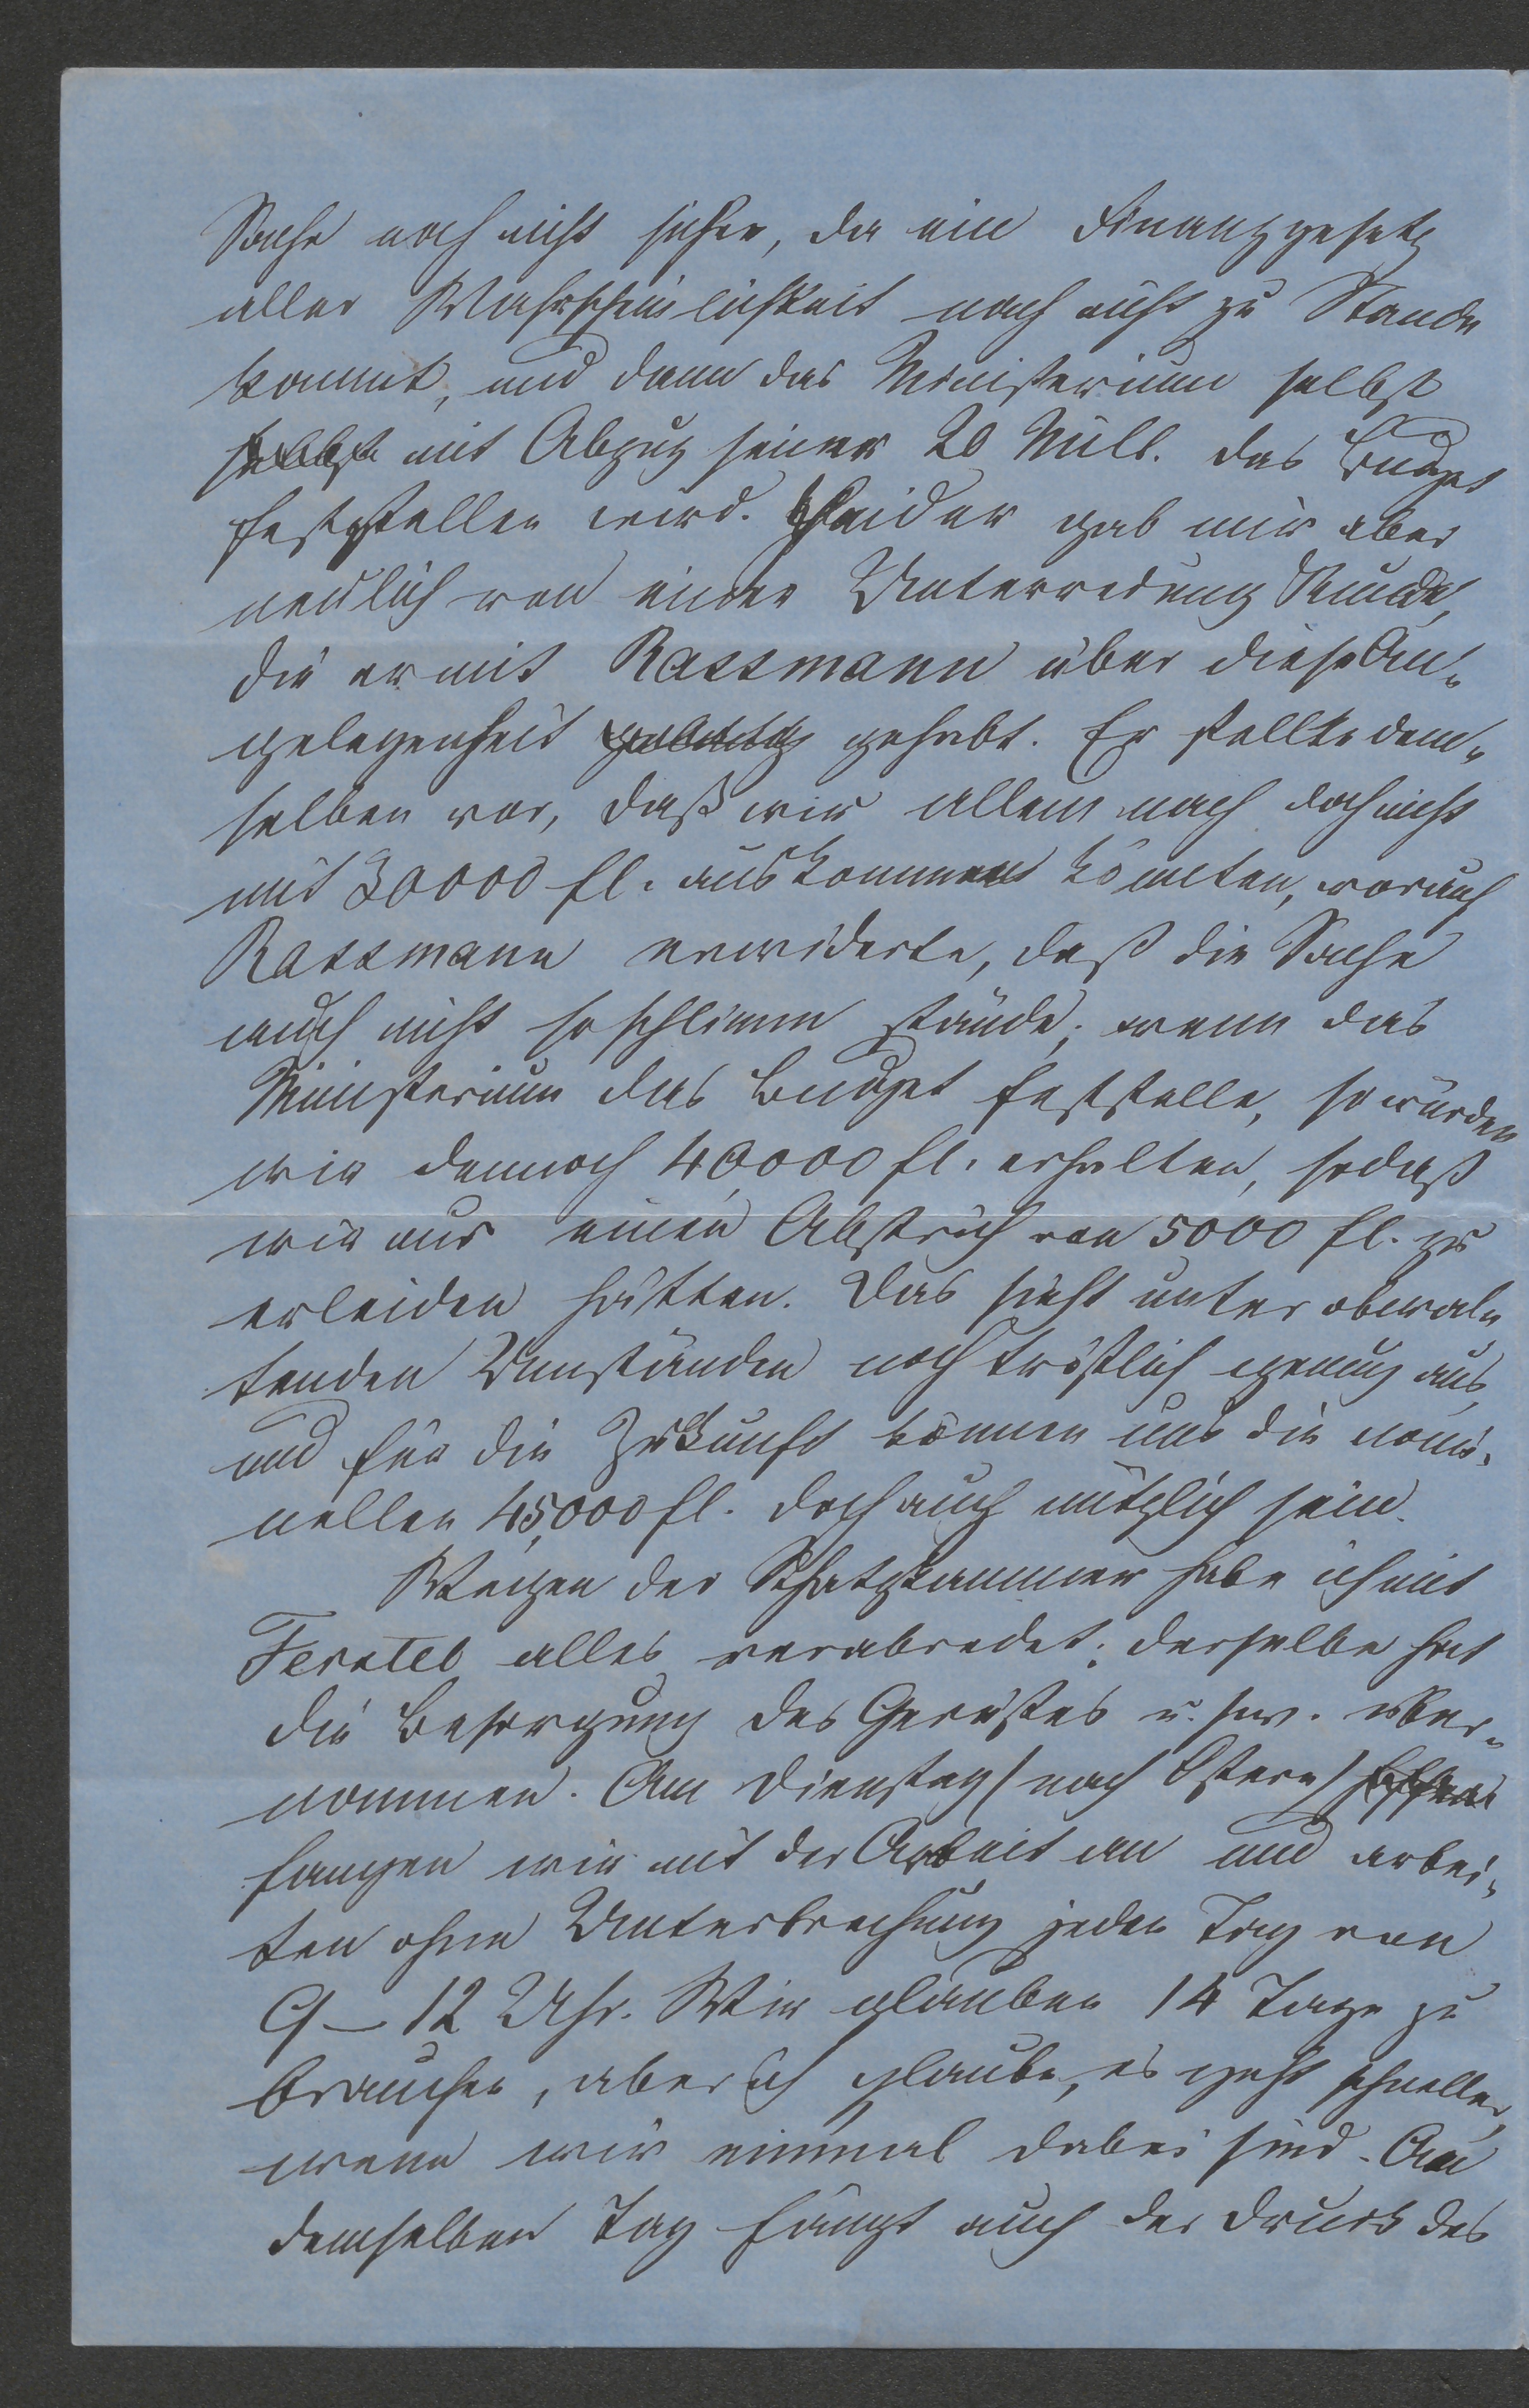 Sache noch nicht sicher, da ein Finanzgesetz
aller Wahrscheinlichkeit nach nicht zu Stande
kommt, und dann das Ministerium selbst
selbst mit Abzug seiner 20 Mill. das Budget
feststellen wird. Heider gab mir aber
neulich von einer Unterredung Kunde,
die er mit Rassmann über diese An-
gelegenheit gehabt. Er stellte dem-
selben vor, daß wir allem nach doch nicht
mit 30000 fl. auskommen könnten, worauf
Rassmann erwiderte, daß die Sache
auch nicht so schlimm stände; wenn das
Ministerium das Budget feststelle, so würden
wir dennoch 40,000 fl. erhalten, sodaß
wir nur einen Abstrich von 5000 fl. zu
erleiden hätten. Das sieht unter obwal-
tenden Umständen noch tröstlich genug aus,
und für die Zukunft können uns die nomi-
nellen 45,000 fl. doch auch nützlich sein.
Wegen der Schatzkammer habe ich mit
Ferstel alles verabredet; derselbe hat
die Besorgung des Gerüstes u. s. w. über-
nommen. Am Dienstag (nach Ostern)
fangen wir mit der Arbeit an und arbei-
ten ohne Unterbrechung jeden Tag von
9–12 Uhr. Wir glauben 14 Tage zu
brauchen, aber ich glaube, es geht schneller,
wenn wir einmal dabei sind. An
demselben Tag fängt auch der Druck des